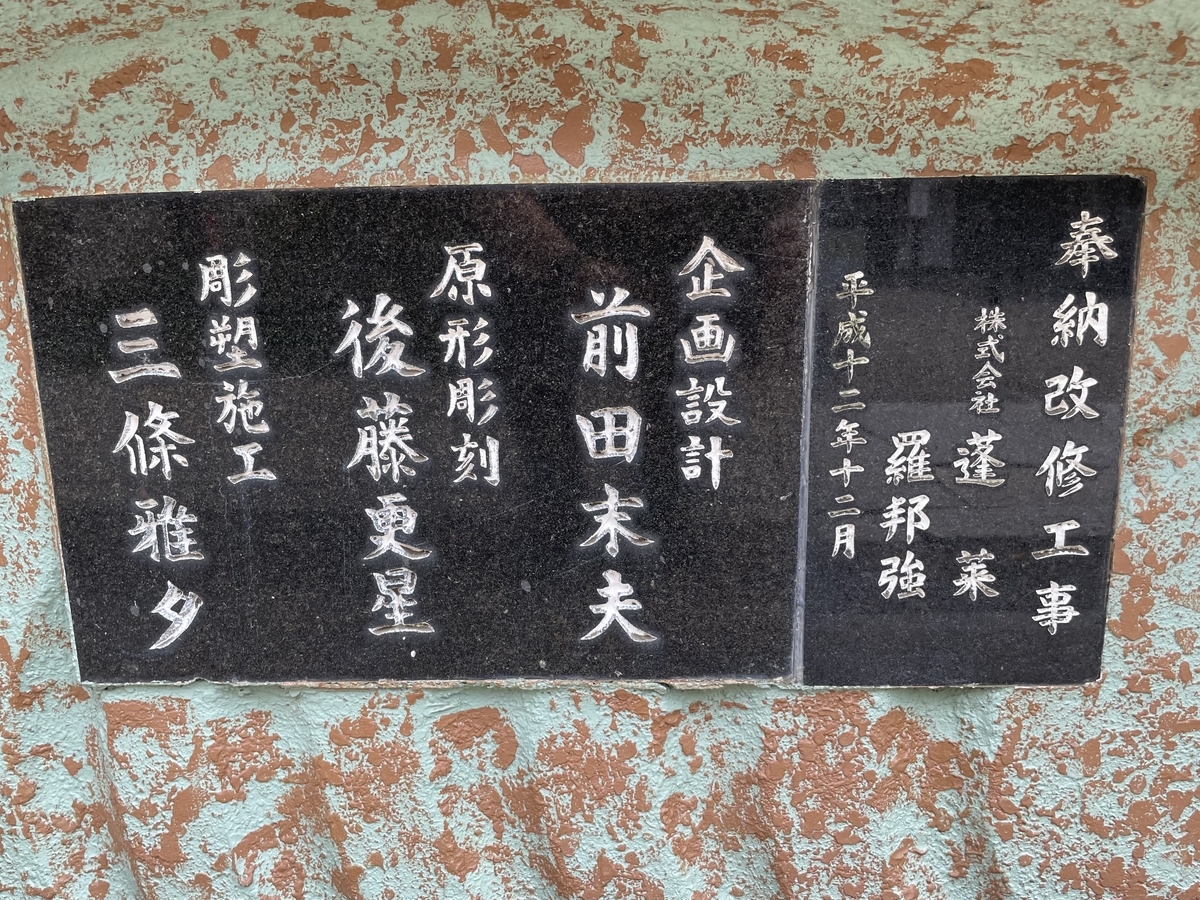 奉納改修工事
株式会社 蓬莱
羅邦強
平成十二年十二月
企画設計
前田末夫
原形彫刻
後藤更星
彫塑施工
三條雅夕